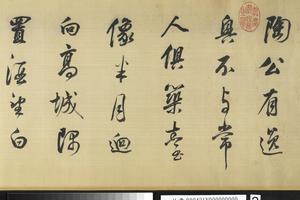 陶公有逸
興不与常
人俱築臺
像半月迥
向高城隅
置酒望白